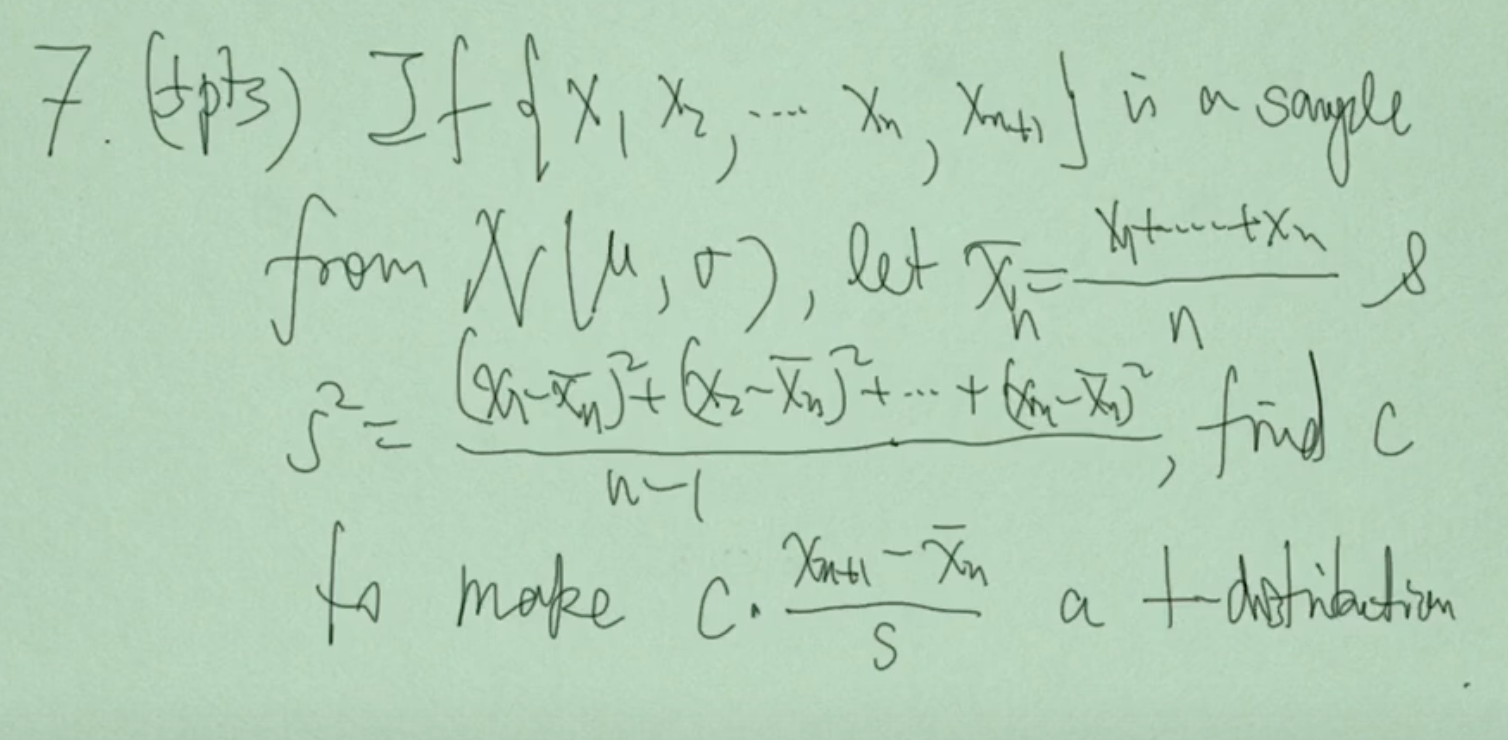 7. (5pts) If {X₁ X₂, ... Xₙ, Xₙ₊₁} is a sample
from N(μ, σ), let X̄ₙ = (X₁+......+Xₙ)/n &
S² = ((X₁-X̄ₙ)²+(X₂-X̄ₙ)²+...+(Xₙ-X̄ₙ)²)/(n-1), find C
to make C. (Xₙ₊₁-X̄ₙ)/S a t-distribution.